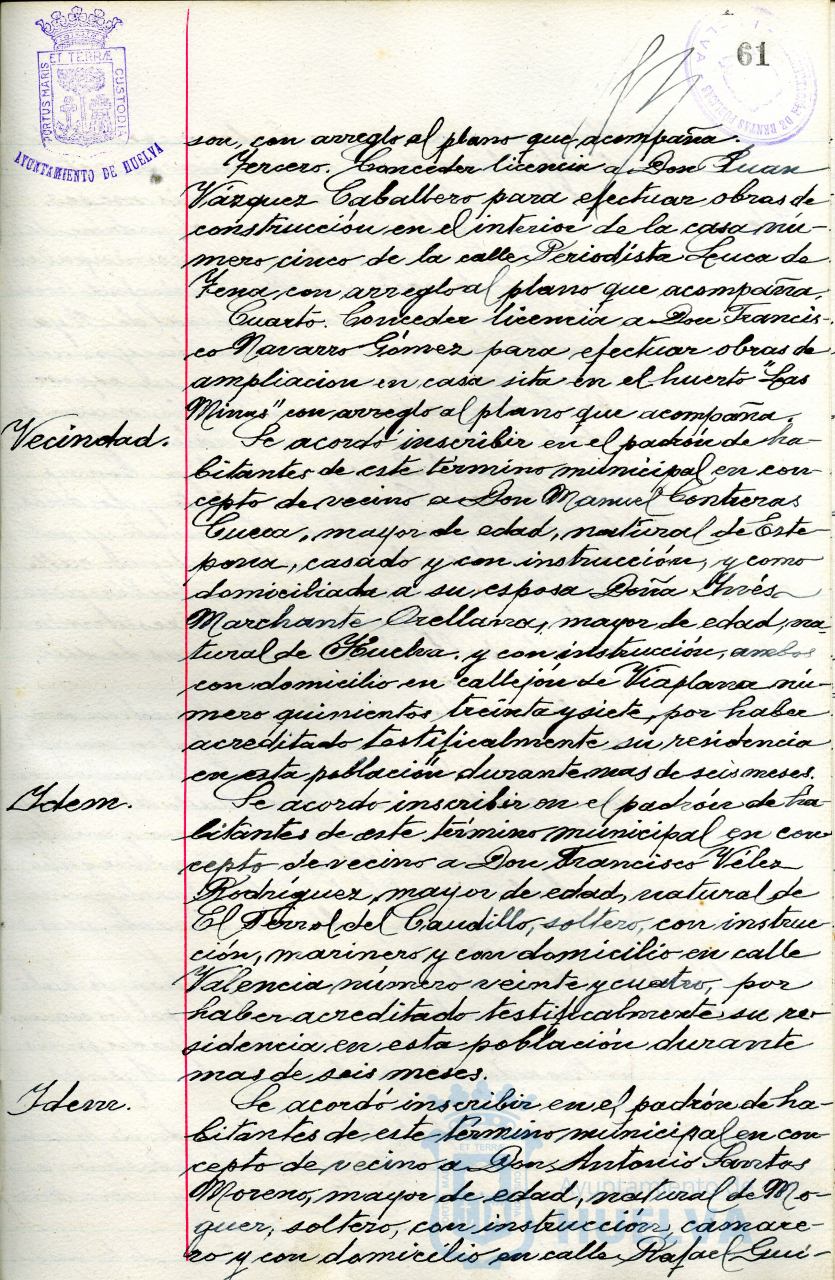 61
ET TERRÆ
PORTUS MARIS
CUSTODIA
AYUNTAMIENTO DE HUELVA
son, con arreglo al plano que acompaña.
Tercero. Conceder licencia a Don Juan
Vázquez Caballero para efectuar obras de
construcción en el interior de la casa nú-
mero cinco de la calle Periodista Luca de
Tena, con arreglo al plano que acompaña.
Cuarto. Conceder licencia a Don Francis-
co Navarro Gómez para efectuar obras de
ampliacion en casa sita en el huerto "Las
Minas" con arreglo al plano que acompaña.
Vecindad.
Se acordó inscribir en el padrón de ha-
bitantes de este término municipal en con-
cepto de vecino a Don Manuel Contreras
Cueca, mayor de edad, natural de Este-
pona, casado y con instrucción, y como
domiciliada a su esposa Doña Inés
Marchante Orellana, mayor de edad, na-
tural de Huelva, y con instrucción, ambos
con domicilio en callejón de Viaplana nú-
mero quinientos treinta y siete, por haber
acreditado testificalmente su residencia
en esta población durante mas de seis meses.
Idem.
Se acordo inscribir en el padrón de ha-
bitantes de este término municipal en con-
cepto de vecino a Don Francisco Vélez
Rodríguez, mayor de edad, natural de
El Ferrol del Caudillo, soltero, con instruc-
ción, marinero y con domicilio en calle
Valencia número veinte y cuatro, por
haber acreditado testificalmente su re-
sidencia en esta población durante
mas de seis meses.
Idem.
Se acordó inscribir en el padrón de ha-
bitantes de este término municipal en con-
cepto de vecino a Don Antonio Santos
Moreno, mayor de edad, natural de Mo-
guer, soltero, con instrucción, camare-
ro y con domicilio en calle Rafael Gui-
Ayuntamiento de
HUELVA